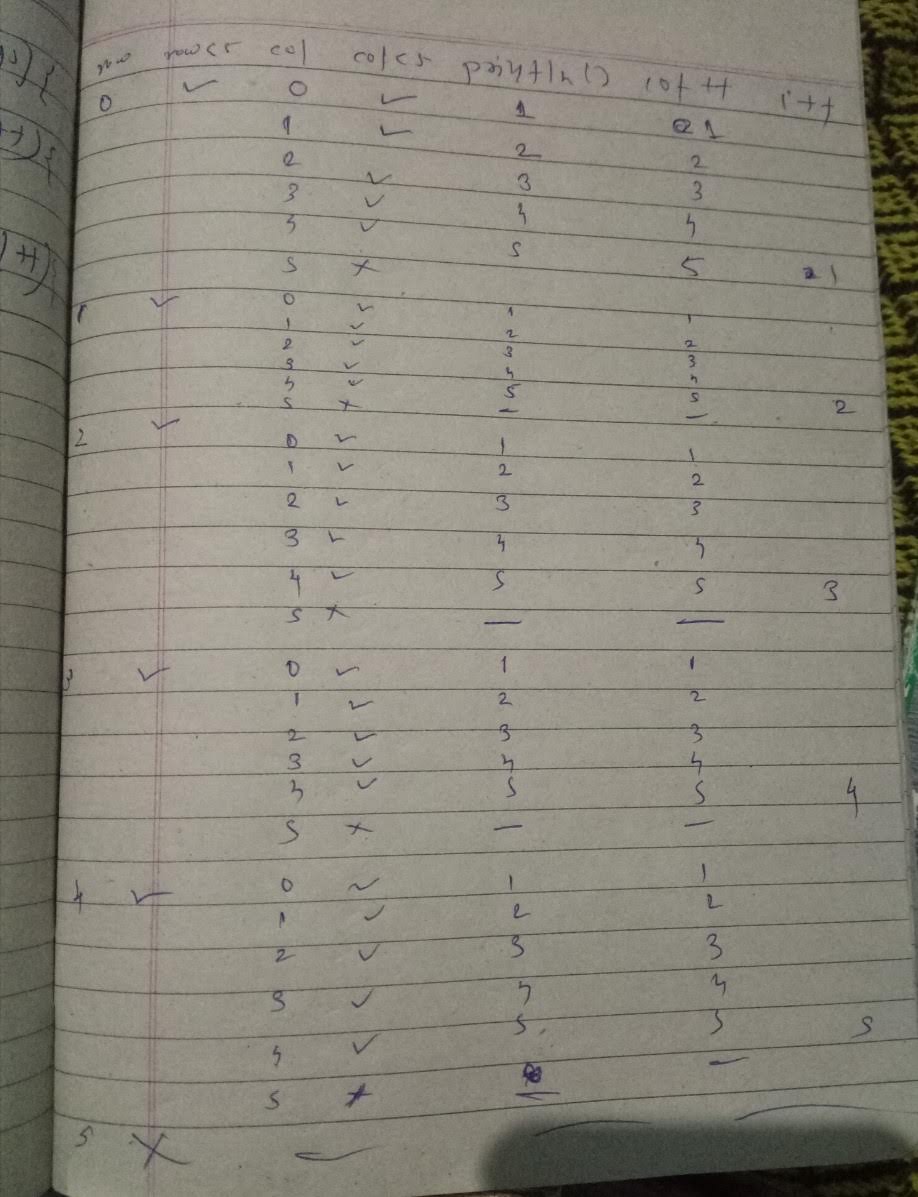 row row<5 col col<5 print(n) col++ i++
0 ✓ 0 ✓ 1 1
1 ✓ 2 2
2 ✓ 3 3
3 ✓ 4 4
4 ✓ 5 5
5 × 1
1 ✓ 0 ✓ 1 1
1 ✓ 2 2
2 ✓ 3 3
3 ✓ 4 4
4 ✓ 5 5
5 × — — 2
2 ✓ 0 ✓ 1 1
1 ✓ 2 2
2 ✓ 3 3
3 ✓ 4 4
4 ✓ 5 5 3
5 × — —
3 ✓ 0 ✓ 1 1
1 ✓ 2 2
2 ✓ 3 3
3 ✓ 4 4
4 ✓ 5 5 4
5 × — —
4 ✓ 0 ✓ 1 1
1 ✓ 2 2
2 ✓ 3 3
3 ✓ 4 4
4 ✓ 5 5 5
5 × — —
5 × —